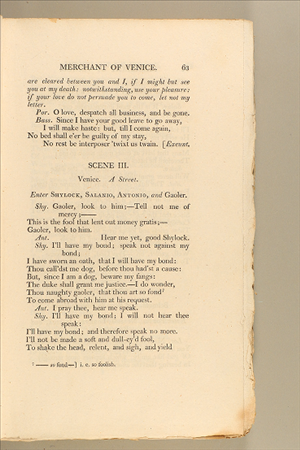 MERCHANT OF VENICE. 63
are cleared between you and I, if I might but see
you at my death: notwithstanding, use your pleasure:
if your love do not persuade you to come, let not my
letter.
Por. O love, despatch all business, and be gone.
Bass. Since I have your good leave to go away,
I will make haste: but, till I come again,
No bed shall e'er be guilty of my stay,
No rest be interposer 'twixt us twain. [Exeunt.
SCENE III.
Venice. A Street.
Enter SHYLOCK, SALANIO, ANTONIO, and Gaoler.
Shy. Gaoler, look to him:—Tell not me of
mercy;——
This is the fool that lent out money gratis;—
Gaoler, look to him.
Ant. Hear me yet, good Shylock.
Shy. I'll have my bond; speak not against my
bond;
I have sworn an oath, that I will have my bond:
Thou call'dst me dog, before thou had'st a cause:
But, since I am a dog, beware my fangs:
The duke shall grant me justice.—I do wonder,
Thou naughty gaoler, that thou art so fond¹
To come abroad with him at his request.
Ant. I pray thee, hear me speak.
Shy. I'll have my bond; I will not hear thee
speak:
I'll have my bond; and therefore speak no more.
I'll not be made a soft and dull-ey'd fool,
To shake the head, relent, and sigh, and yield
¹ —— so fond—] i. e. so foolish.